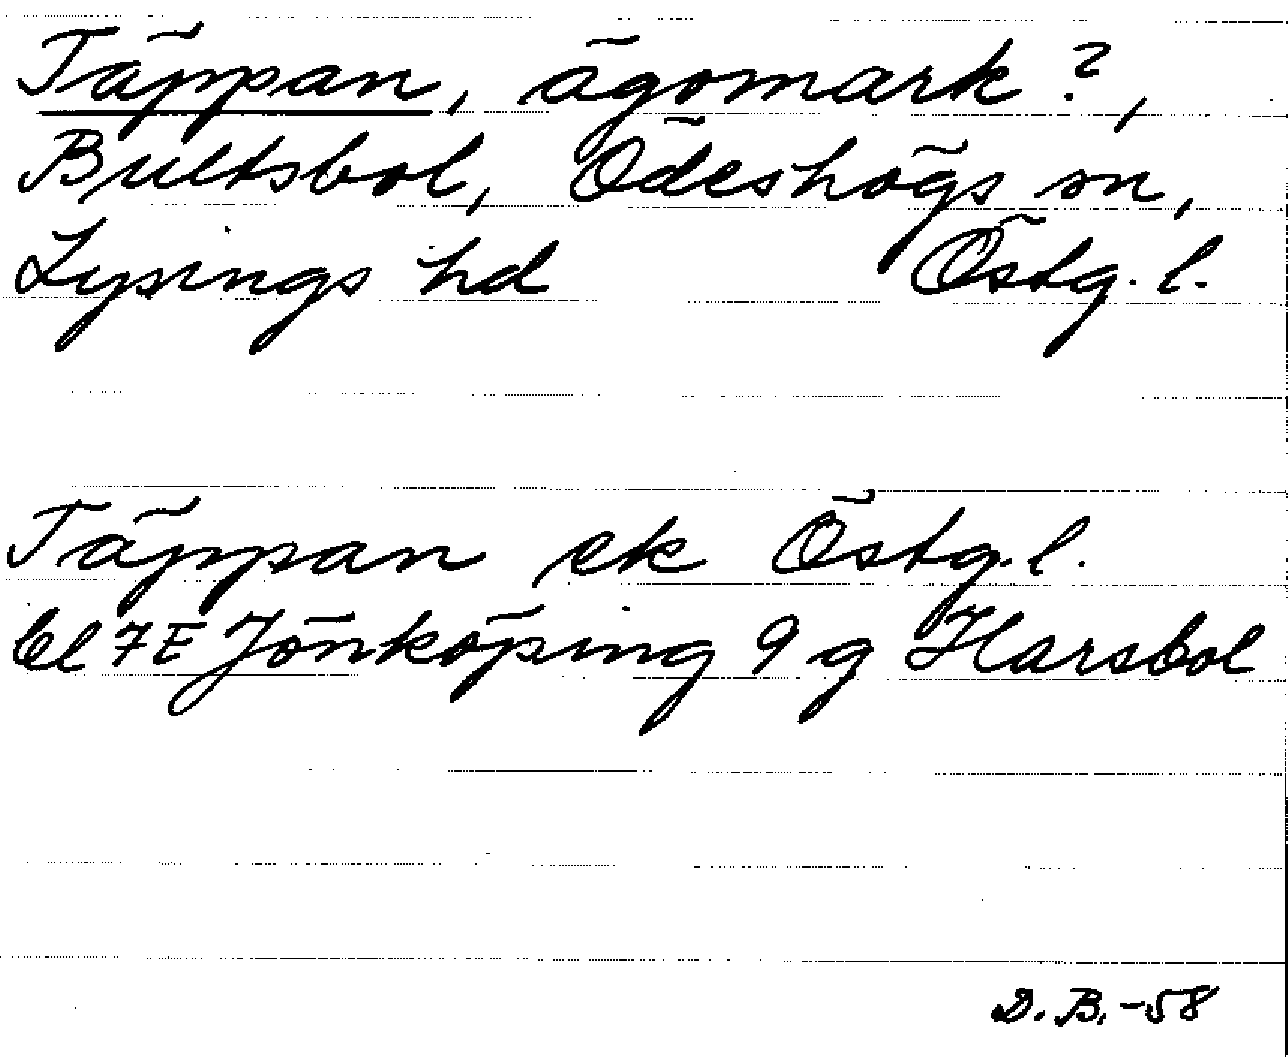 Täppan, ägomark?,
Bultsbol, Ödeshögs sn,
Lysings hd Östg. l.
Täppan ek Östg. l.
bl 7E Jönköping 9 g Harsbol
D. B. -58